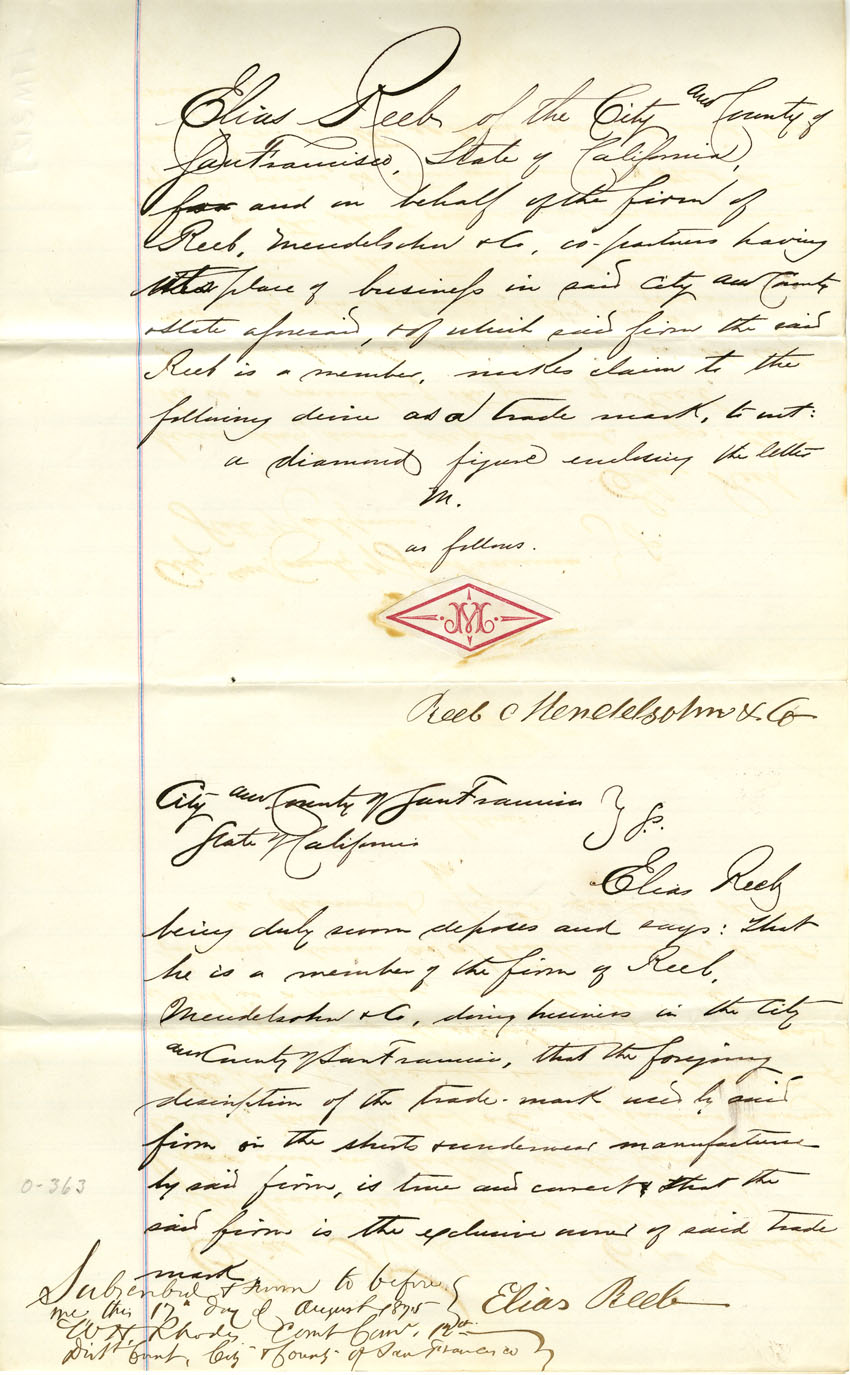 Elias Reeb of the City and County of
San Francisco, State of California,
for and on behalf of the firm of
Reeb, Mendelsohn & Co, co-partners having
its place of business in said City and County
& State aforesaid, & of which said firm the said
Reeb is a member, makes claim to the
following device as a trade mark, to wit:
a diamond figure enclosing the letter
M.
as follows.
M
Reeb Mendelsohn & Co
City and County of San Francisco
State of California } ss.
Elias Reeb
being duly sworn deposes and says: that
he is a member of the firm of Reeb,
Mendelsohn & Co, doing business in the City
and County of San Francisco, that the foregoing
description of the trade-mark used by said
firm on the shirts & underwear manufactured
by said firm, is true and correct & that the
said firm is the exclusive owner of said trade
mark
Subscribed & sworn to before
me this 17th day of August 1875
W. H. Rhodes Court Com. 12th
Dist. Court, City & County of San Francisco
Elias Reeb
0-363